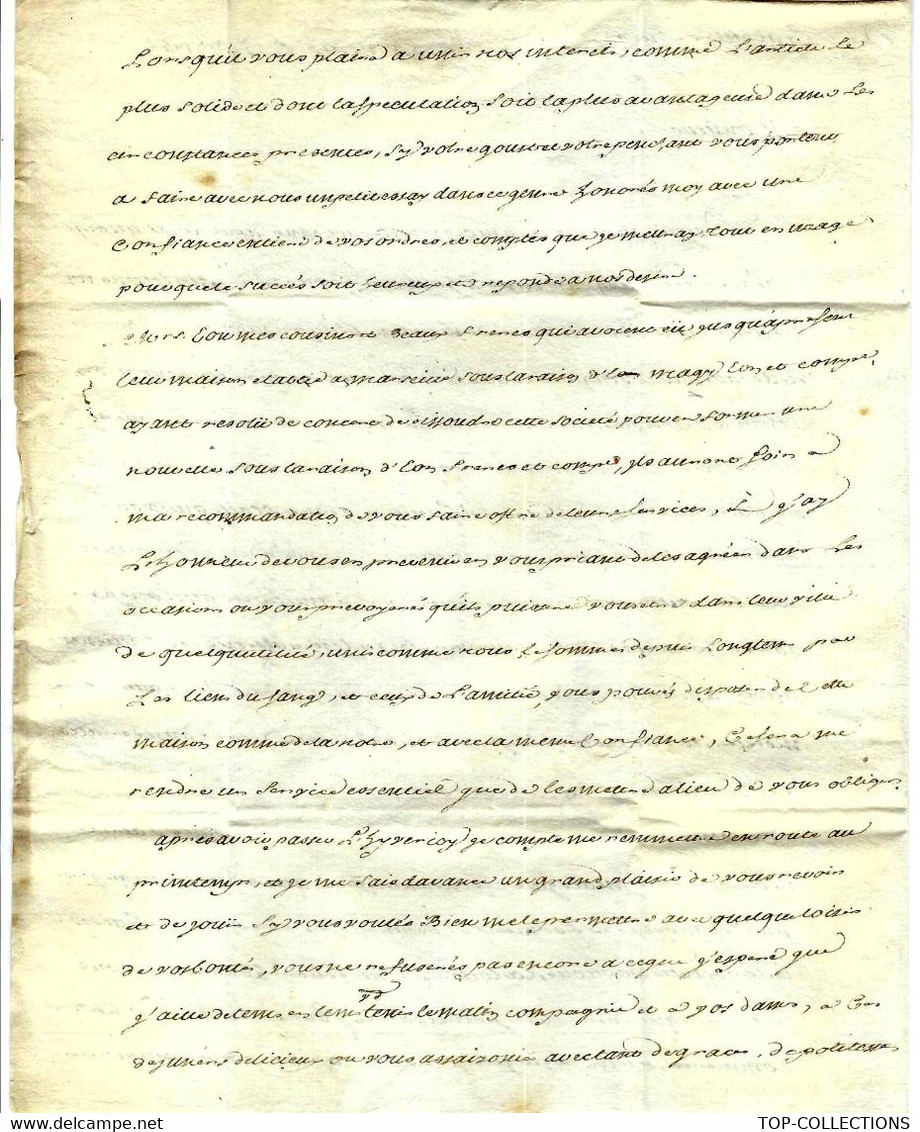 Lorsqu'il vous plaira a unir nos interets, comme l'article le
plus solide et dont la speculation soit la plus avantageuse dans les
circonstances presentes, sy votre goust et votre penchant vous portent
a faire avec nous un petit essay dans ce genre honorés moy avec une
Confiance entiere de vos ordres, et comptés que je mettray tout en usage
pour que le succés soit heureux et reponde a nos desirs.
Mrs. Lon mes cousins et beaux freres qui avoient eü jusqu'apresent
leur maison etablie a marseille sous la raison d' magy Lon et comp.e
ayant resolu de concert de dissoudre cette societé pour en former une
nouvelle sous la raison d' Lon freres et comp.e, ils auront soin a
ma recommandation de vous faire offre de leurs services, & j'ay
L'honneur de vous en prevenir en vous priant de les agréer dans les
occasions ou vous prevoyerés qu'ils puissent vous etre dans leur ville
de quelqu utilité, unis comme nous le sommes depuis longtems par
Les liens du sang, et ceux de l'amitié, vous pouvés disposer de cette
maison comme de la notre, et avec la meme Confiance, Ce sera me
rendre un service essentiel que de les mettre a lieu de vous obliger
après avoir passé l'hyver icy je compte me remmettre en route au
printemps, et je me fais d'avance un grand plaisir de vous revoir
et de jouir sy vous voulés bien me le permettre avec quelque loisir
de vos bontés, vous ne refuserés pas encore a ce que j'espere que
j'aille de tems en tems tenir le matin compagnie et a vos dames, a Ces
dejuners delicieux ou vous assaisonnés avec tant de graces, de politesses
TOP-COLLECTIONS